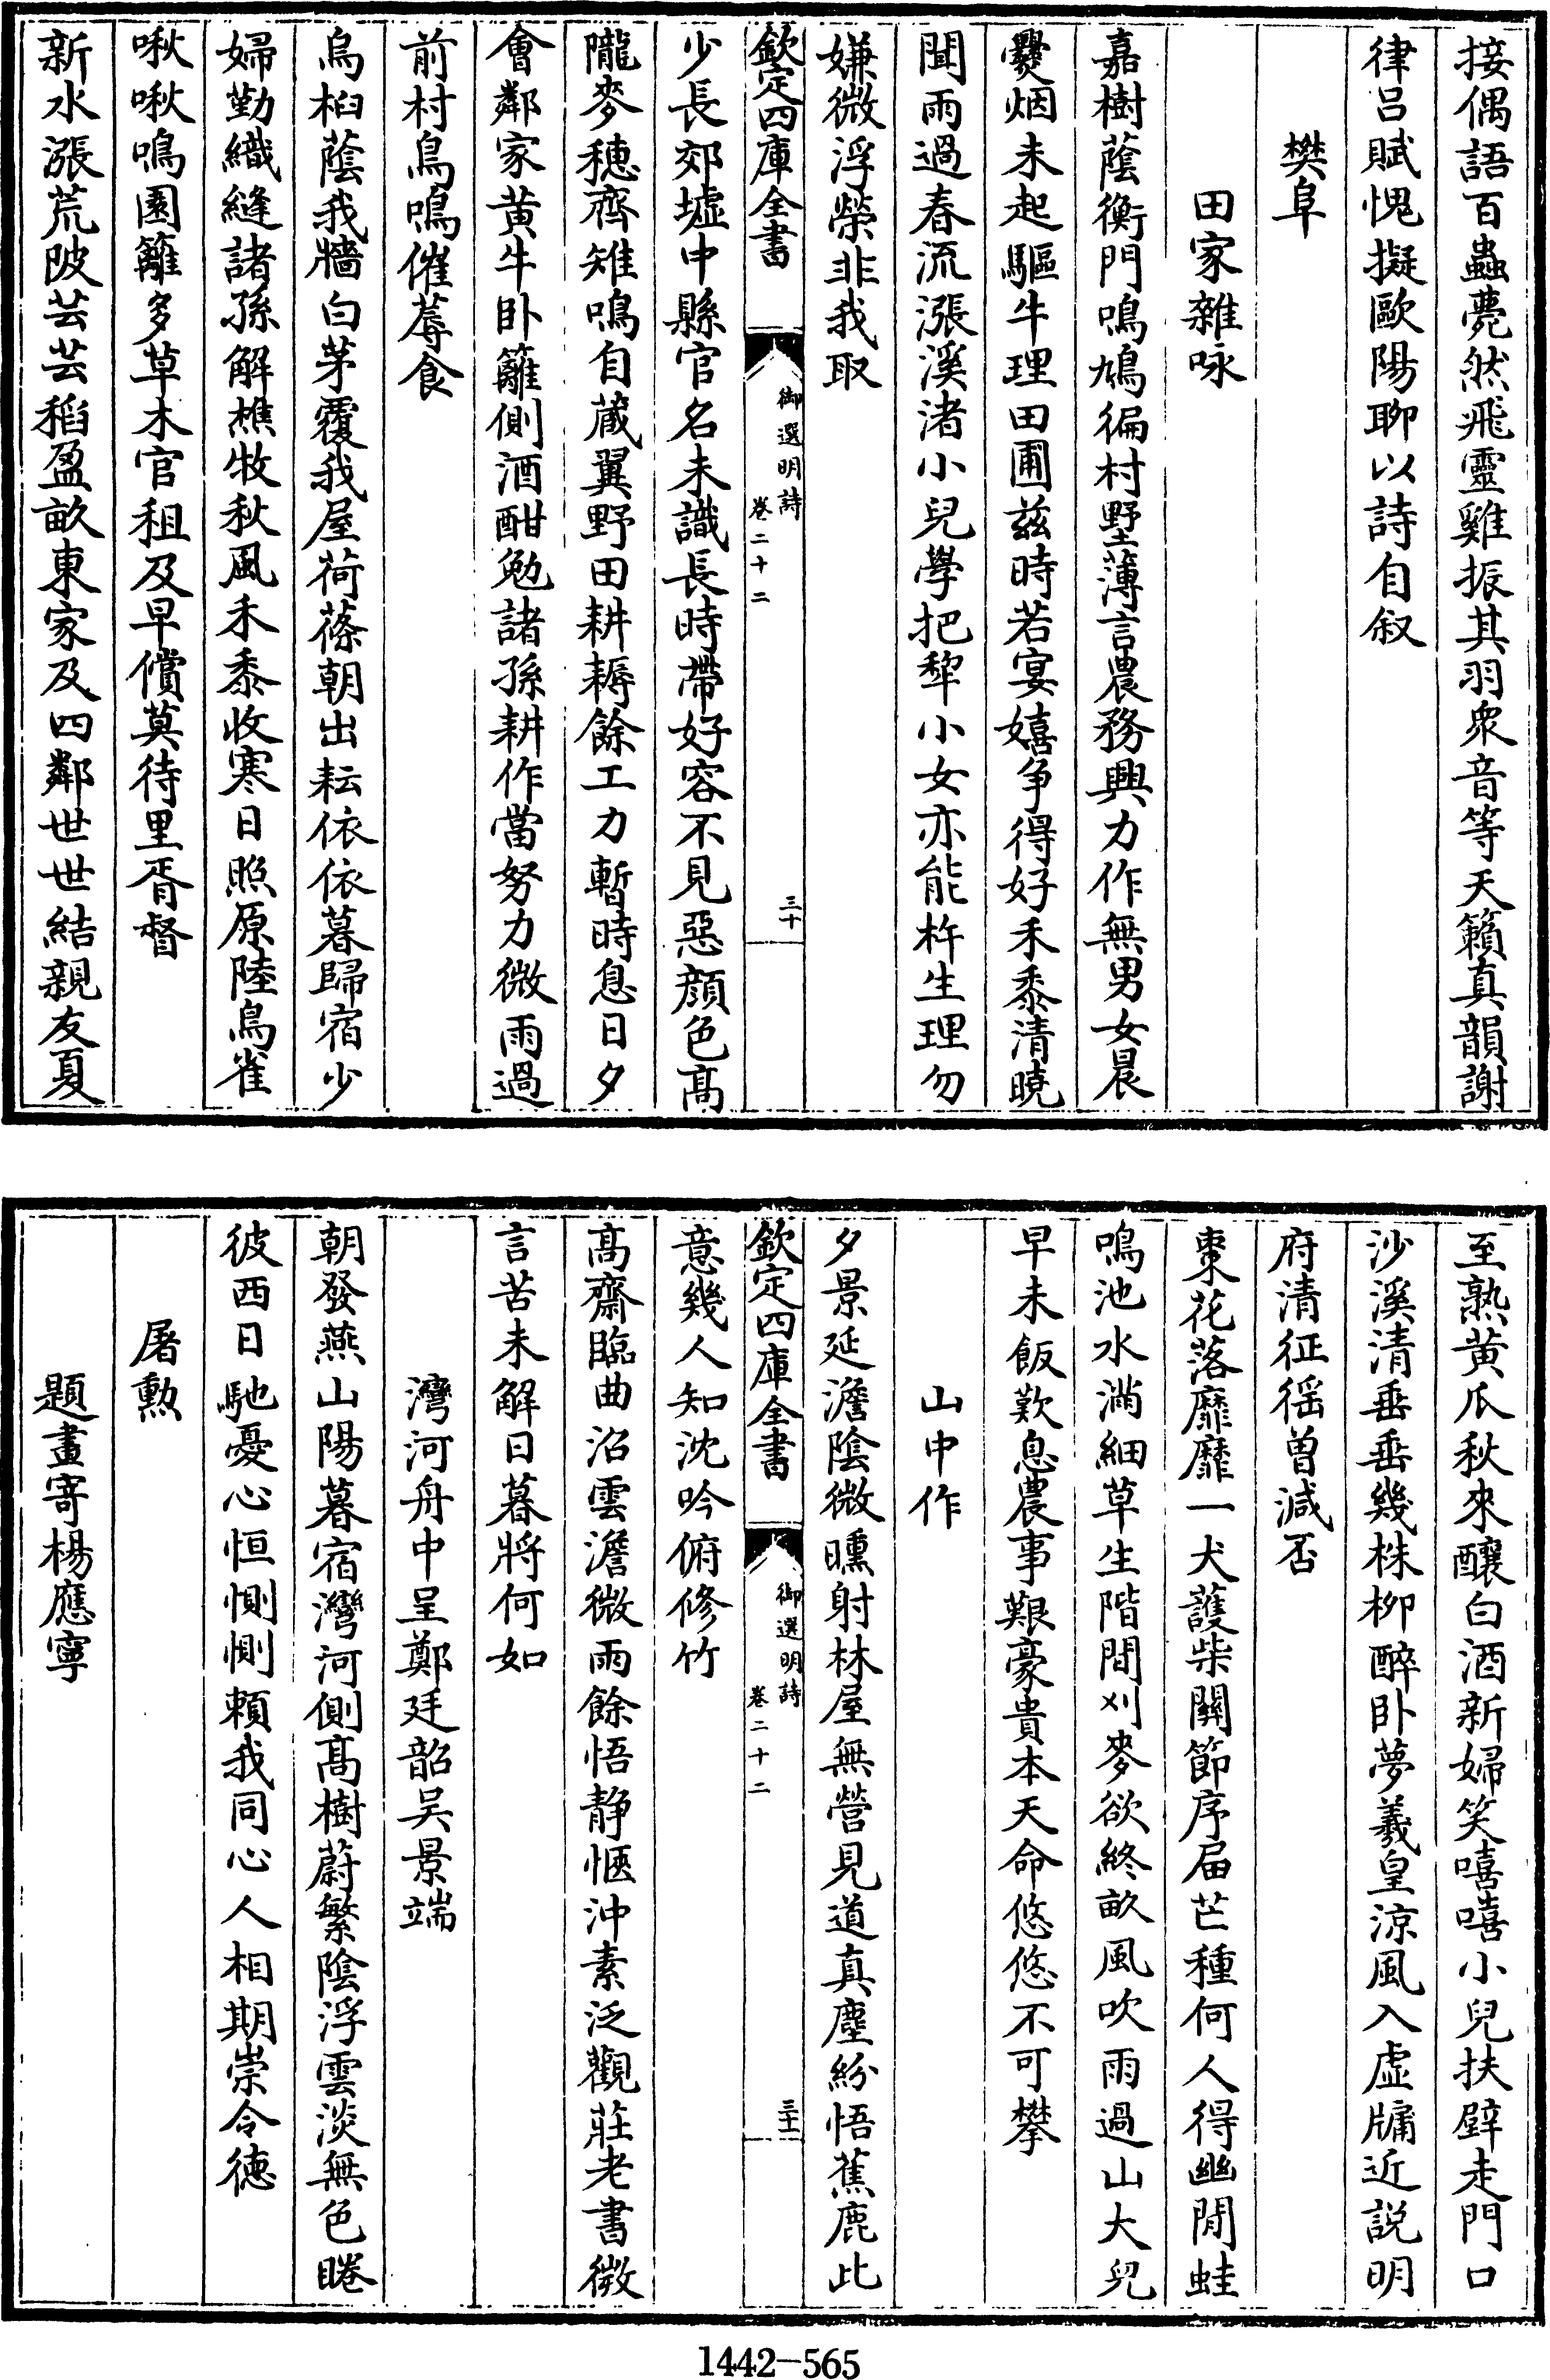 接偶語百蟲薨然飛靈雞振其羽衆音等天籟真韻謝
律呂賦愧擬歐陽聊以詩自叙
樊阜
田家雜咏
嘉樹蔭衡門鳴鳩徧村墅薄言農務興力作無男女晨
爨烟未起驅牛理田圃兹時若宴嬉争得好禾黍清曉
聞雨過春流漲溪渚小兒學把犂小女亦能杵生理勿
嫌微浮榮非我取
欽定四庫全書
御選明詩
卷二十二
三十
少長郊墟中縣官名未識長時帶好容不見惡顔色高
隴麥穗齊雉鳴自蔵翼野田耕耨餘工力暫時息日夕
會鄰家黄牛卧籬側酒酣勉諸孫耕作當努力微雨過
前村鳥鳴催蓐食
烏桕蔭我牆白茅覆我屋荷蓧朝出耘依依暮歸宿少
婦勤織縫諸孫解樵牧秋風禾黍收寒日照原陸鳥雀
啾啾鳴園籬多草木官租及早償莫待里胥督
新水漲荒陂芸芸稻盈畝東家及四鄰世世結親友夏
至熟黄瓜秋來釀白酒新婦笑嘻嘻小兒扶壁走門口
沙溪清垂垂幾株柳醉卧夢羲皇涼風入虚牖近説明
府清征徭曽減否
棗花落靡靡一犬護柴關節序届芒種何人得幽閒蛙
鳴池水滿細草生階間刈麥欲終畝風吹雨過山大兒
早未飯歎息農事艱豪貴本天命悠悠不可攀
山中作
夕景延澹陰微曛射林屋無營見道真塵紛悟蕉鹿此
欽定四庫全書
御選明詩
卷二十二
三十一
意幾人知沈吟俯修竹
高齋臨曲沼雲澹微雨餘悟静愜沖素泛觀莊老書微
言苦未解日暮將何如
灣河舟中呈鄭廷韶吴景端
朝發燕山陽暮宿灣河側高樹蔚繁陰浮雲淡無色睠
彼西日馳憂心恒惻惻頼我同心人相期崇令徳
屠勲
題畫寄楊應寧
1442-565